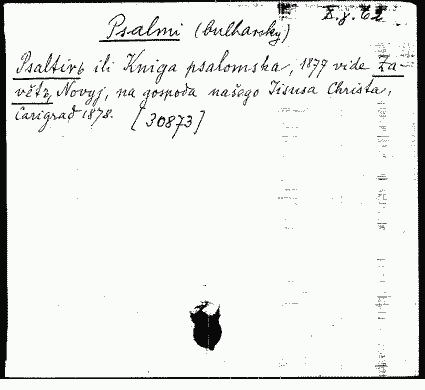 Psalmi (bulharsky)
Psaltirь ili Kniga psalomska, 1877 vide Za-
větz Novyj, na gospoda našego Iisusa Christa,
Carigrad 1878. [30873]